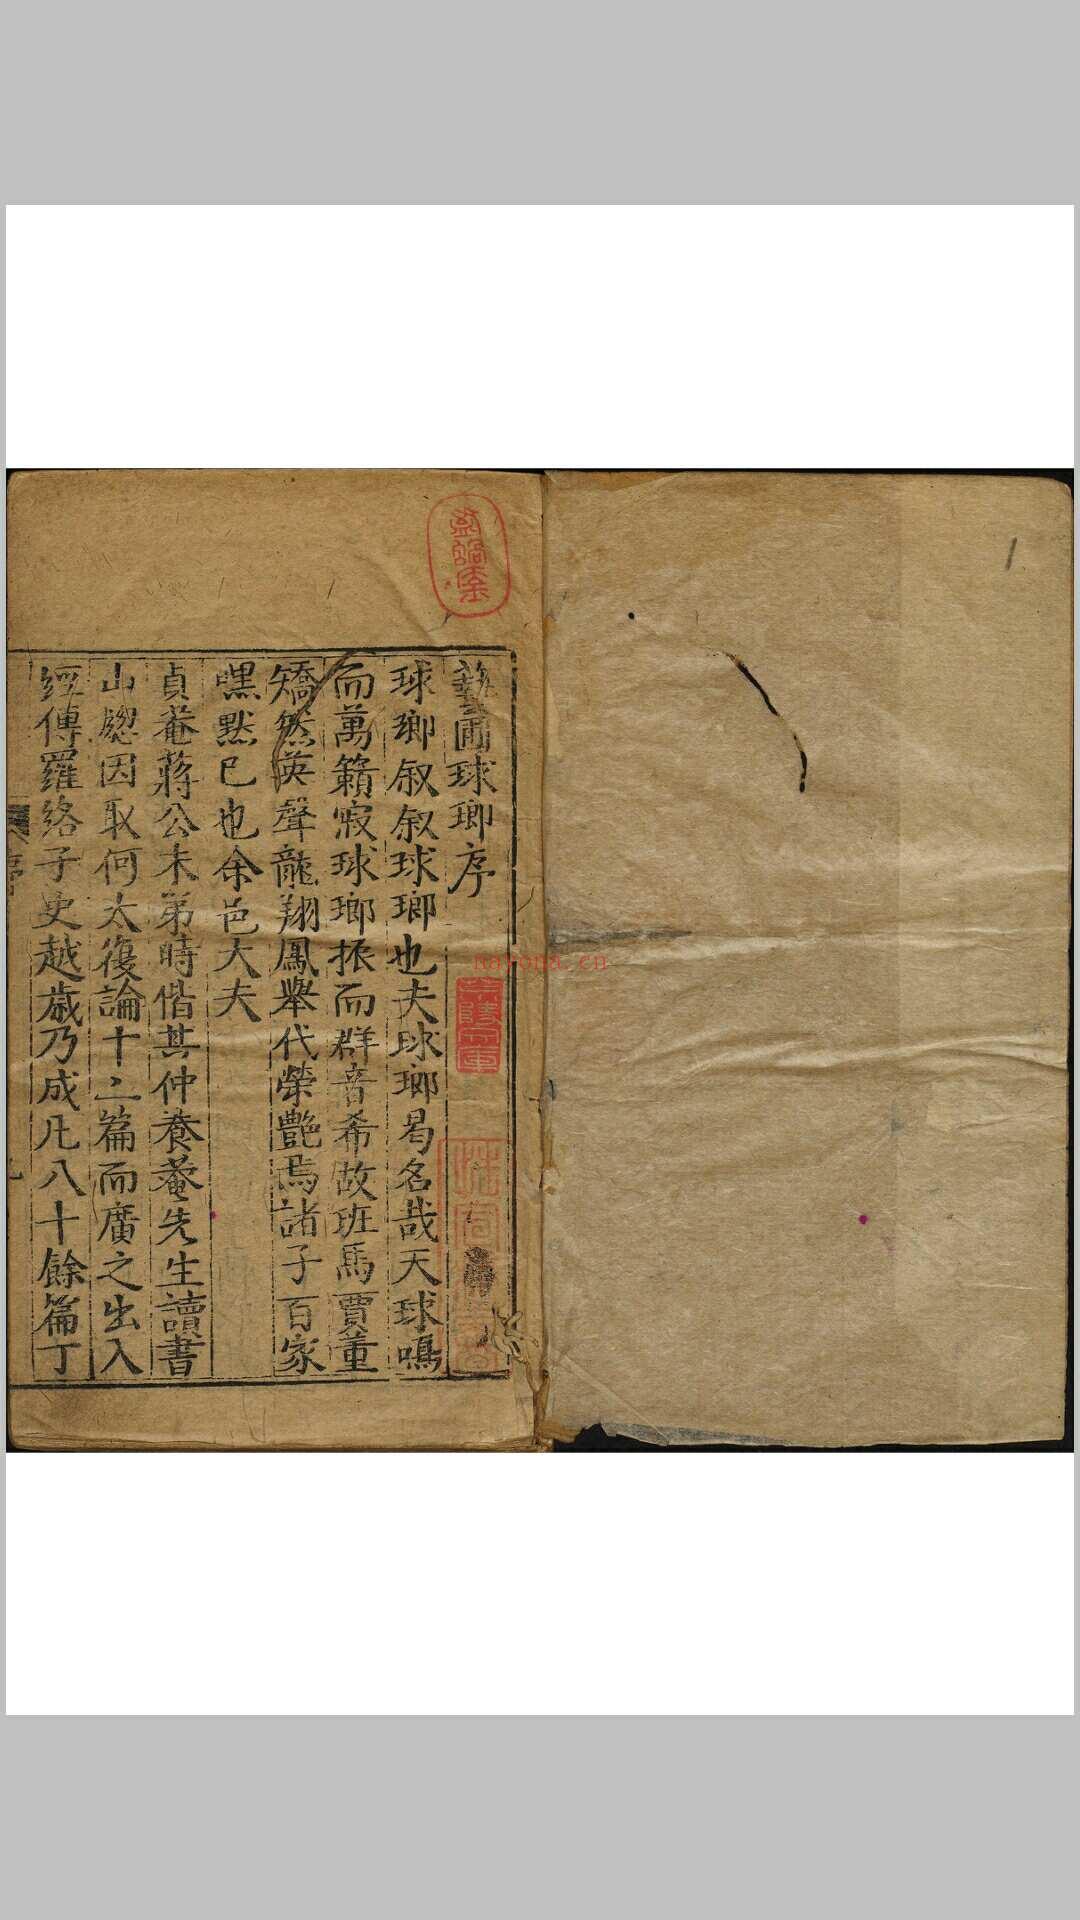 藝圃球瑯序
球瑯叙叙球瑯也夫球瑯曷名哉天球鳴
而萬籟寂球瑯振而群音希故班馬賈董
矯然英聲龍翔鳳舉代榮艷焉諸子百家
嘿默已也余邑大夫
貞菴蔣公未第時偕其仲養菴先生讀書
山牕因取何太復論十二篇而廣之出入
經傳羅絡子史越歲乃成凡八十餘篇丁
序
nayona.cn